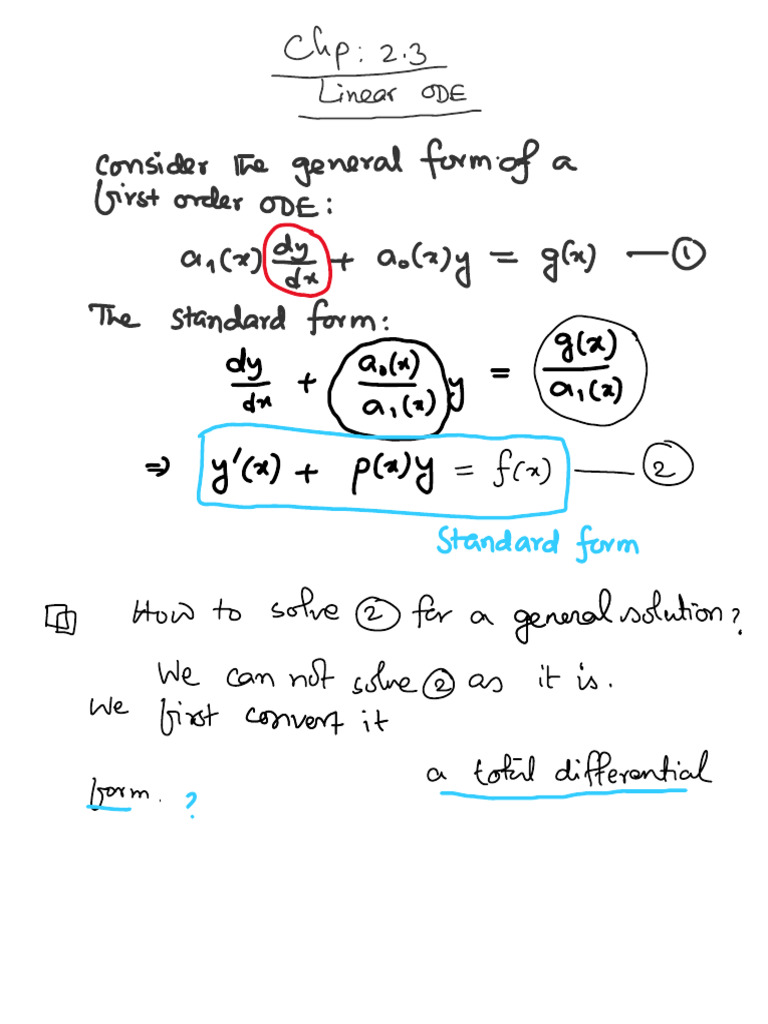 Chp: 2.3
Linear ODE
Consider the general form of a
first order ODE:
a₁(x) dy/dx + a₀(x)y = g(x) — ①
The standard form:
dy/dx + a₀(x)/a₁(x) y = g(x)/a₁(x)
⇒ y'(x) + p(x)y = f(x) — ②
Standard form
How to solve ② for a general solution?
We can not solve ② as it is.
We first convert it
a total differential
form. ?